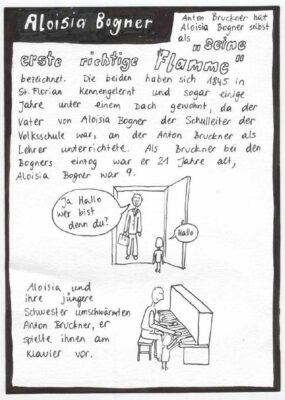 Aloisia Bogner
Anton Bruckner hat
Aloisia Bogner selbst
als „seine
erste richtige Flamme“
bezeichnet. Die beiden haben sich 1845 in
St. Florian kennengelernt und sogar einige
Jahre unter einem Dach gewohnt, da der
Vater von Aloisia Bogner der Schulleiter der
Volksschule war, an der Anton Bruckner als
Lehrer unterrichtete. Als Bruckner bei den
Bogners einzog war er 21 Jahre alt,
Aloisia Bogner war 9.
Ja Hallo
wer bist
denn du?
Hallo
Aloisia und
ihre jüngere
Schwester umschwärmten
Anton Bruckner, er
spielte ihnen am
Klavier vor.